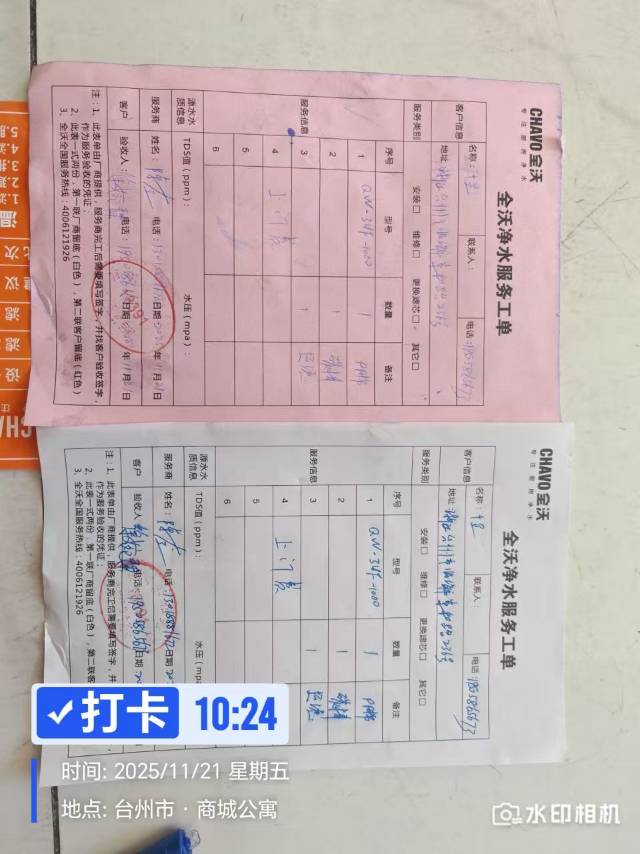 CHAVO全沃
专注厨房净水
全沃净水服务工单
客户信息
名称：
联系人：
电话：
地址：
服务类别
安装□ 维修□ 更换滤芯□ 其它□
服务信息
序号 型号 数量 备注
1 QW-3UF-1000 1 PP棉
2 1
3 1
4 上门费
5
6
源水水质信息
TDS值（ppm）：
水压（mpa）：
服务商
姓名：
电话：
日期 2025年11月21日
客户
验收人：
电话：
日期
注：1、此表单由厂商提供，服务商完工后需要填写签字，并找客户验收签字，
作为服务验收的凭证；
2、此表一式两份，第一联厂商留底（白色），第二联客户留底（红色）
3、全沃全国服务热线：4006121926
CHAVO全沃
专注厨房净水
全沃净水服务工单
客户信息
名称：
联系人：
电话：
地址：
服务类别
安装□ 维修□ 更换滤芯□ 其它□
服务信息
序号 型号 数量 备注
1 QW-3UF-1000 1 PP棉
2 1
3 1
4 上门费
5
6
源水水质信息
TDS值（ppm）：
水压（mpa）：
服务商
姓名：
电话：
日期
客户
验收人：
电话：
日期
注：1、此表单由厂商提供，服务商完工后需要填写签字，并
作为服务验收的凭证；
2、此表一式两份，第一联厂商留底（白色），第
3、全沃全国服务热线：4006121926
打卡 10:24
时间: 2025/11/21 星期五
地点: 台州市·商城公寓
水印相机